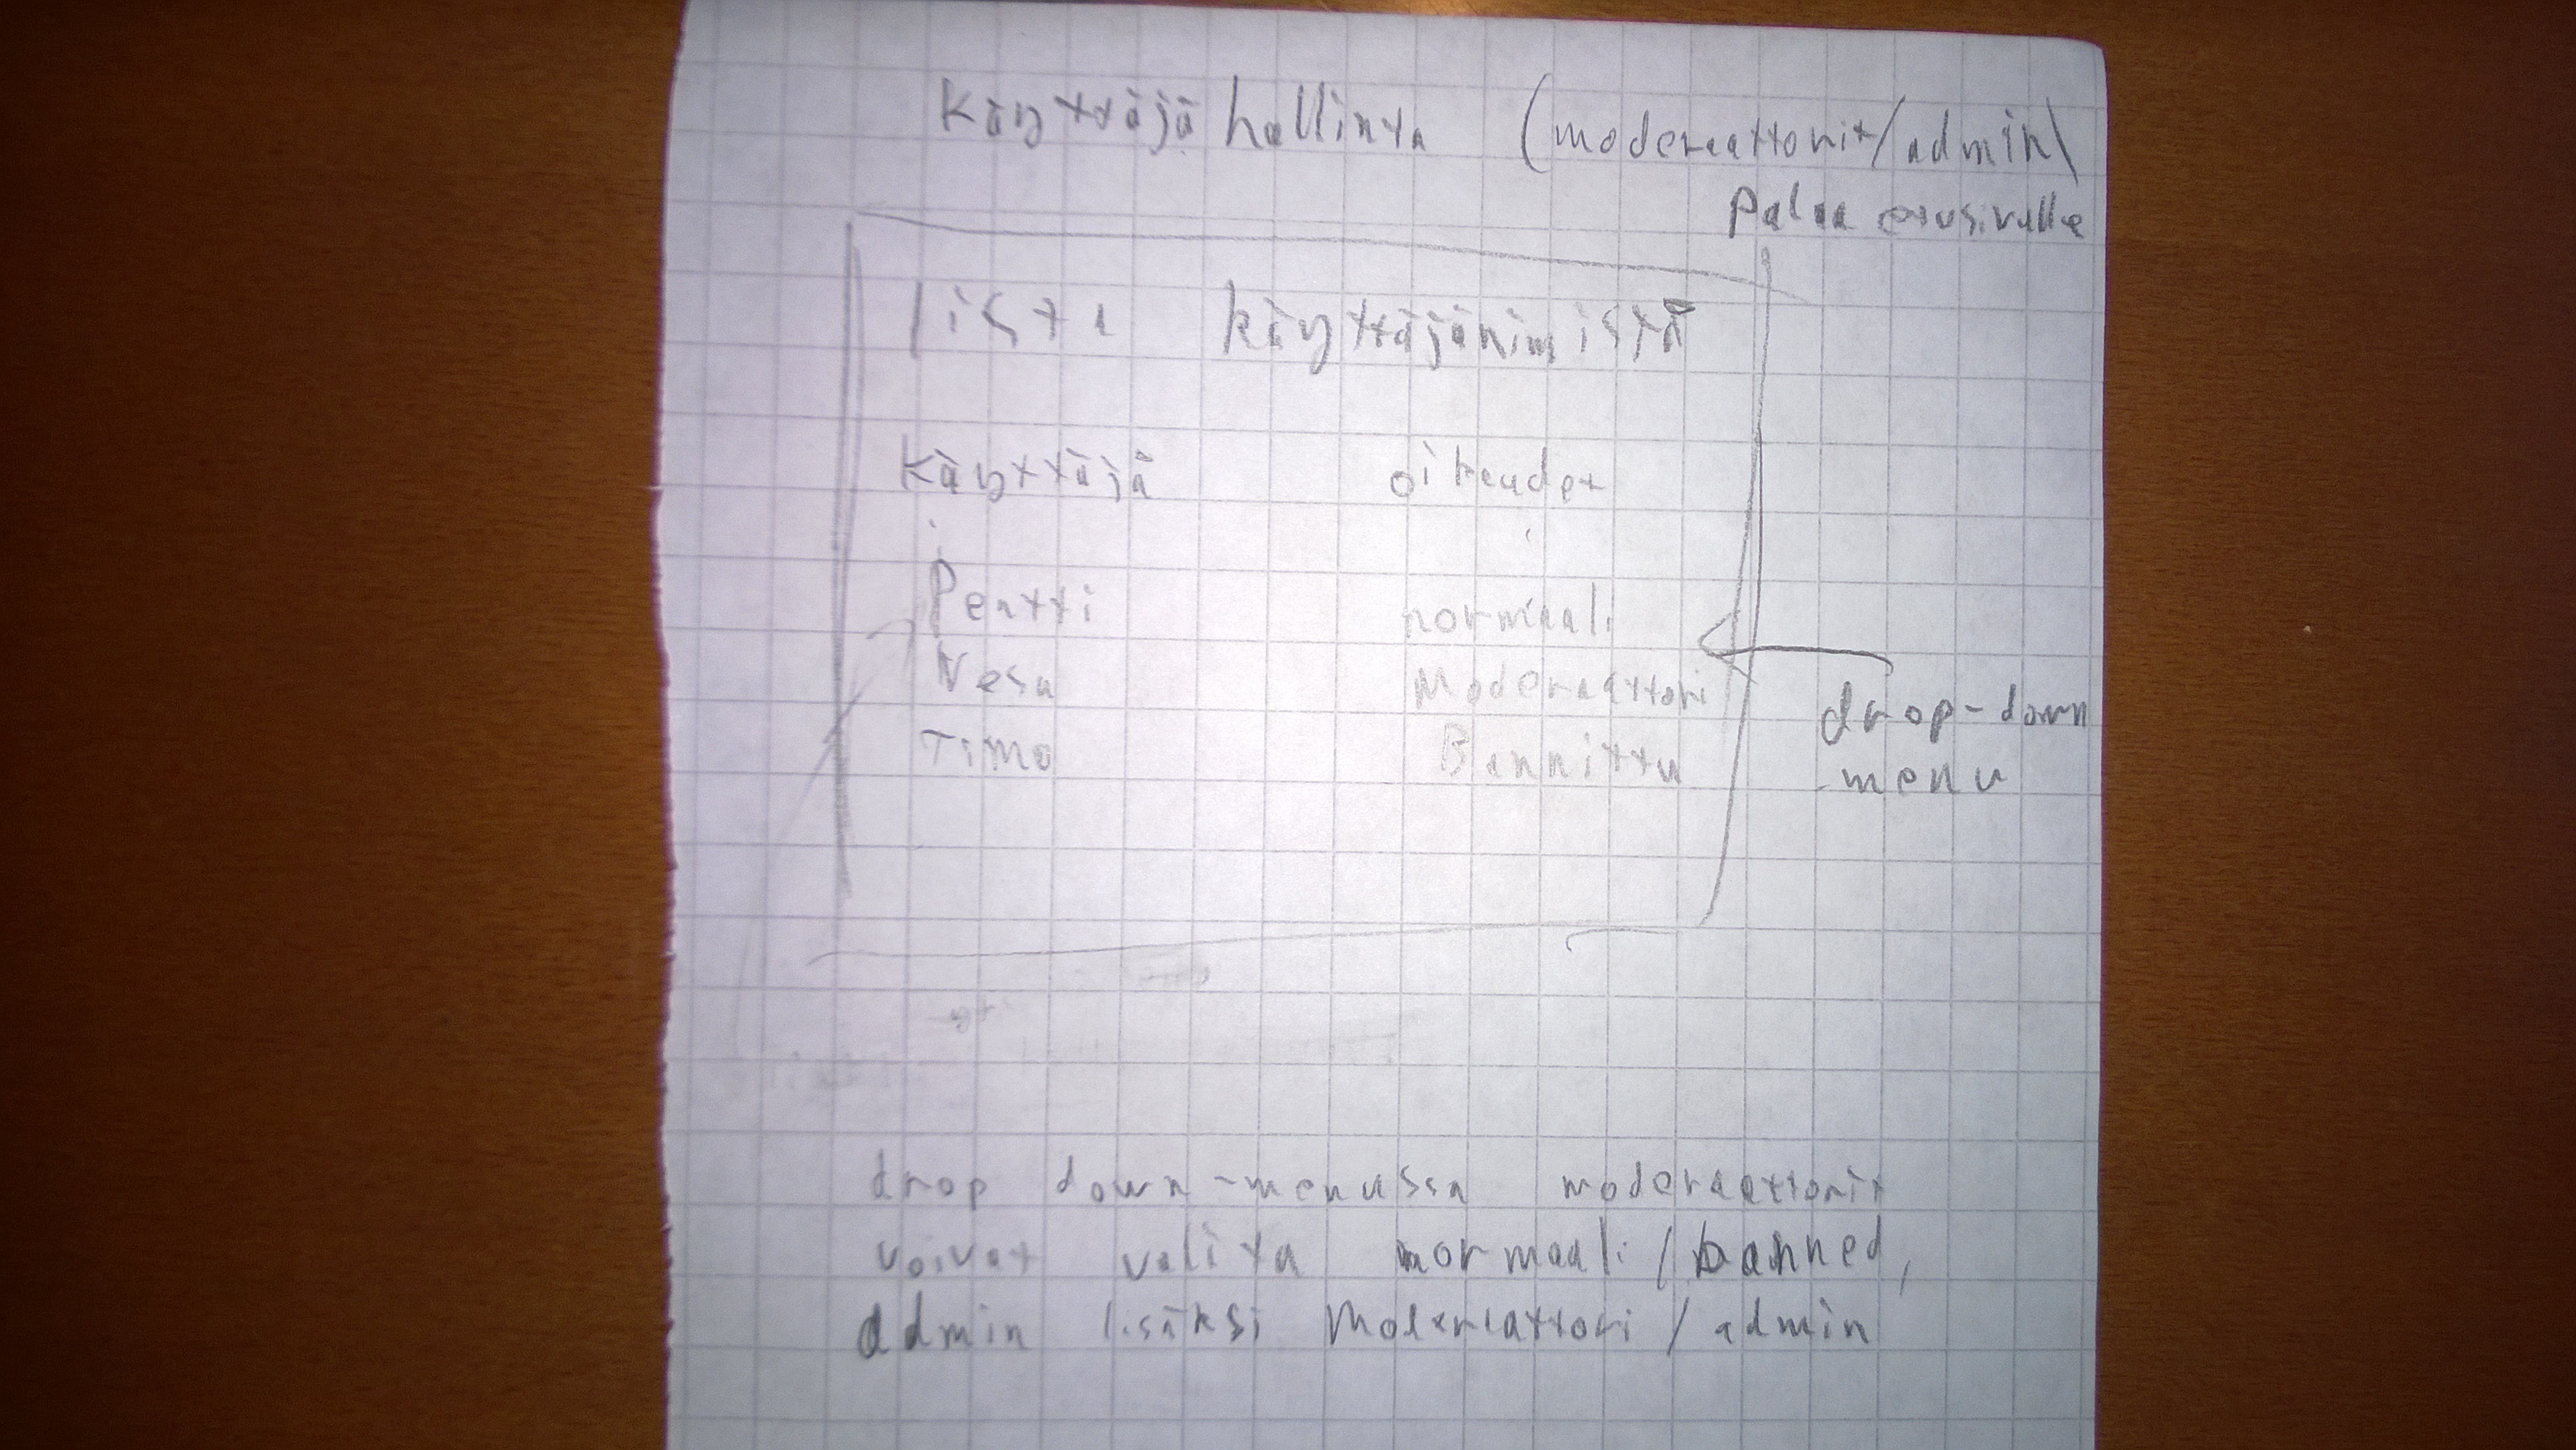 Käyttäjä hallinta (moderaattorit/admin)
Palaa etusivulle
lista käyttäjänimistä
Käyttäjä oikeudet
Pentti normaali
Vesa Moderaattori
Timo Bannittu
drop-down
menu
drop down-menussa moderaattorit
voivat valita normaali/banned,
admin lisäksi Moderaattori/admin